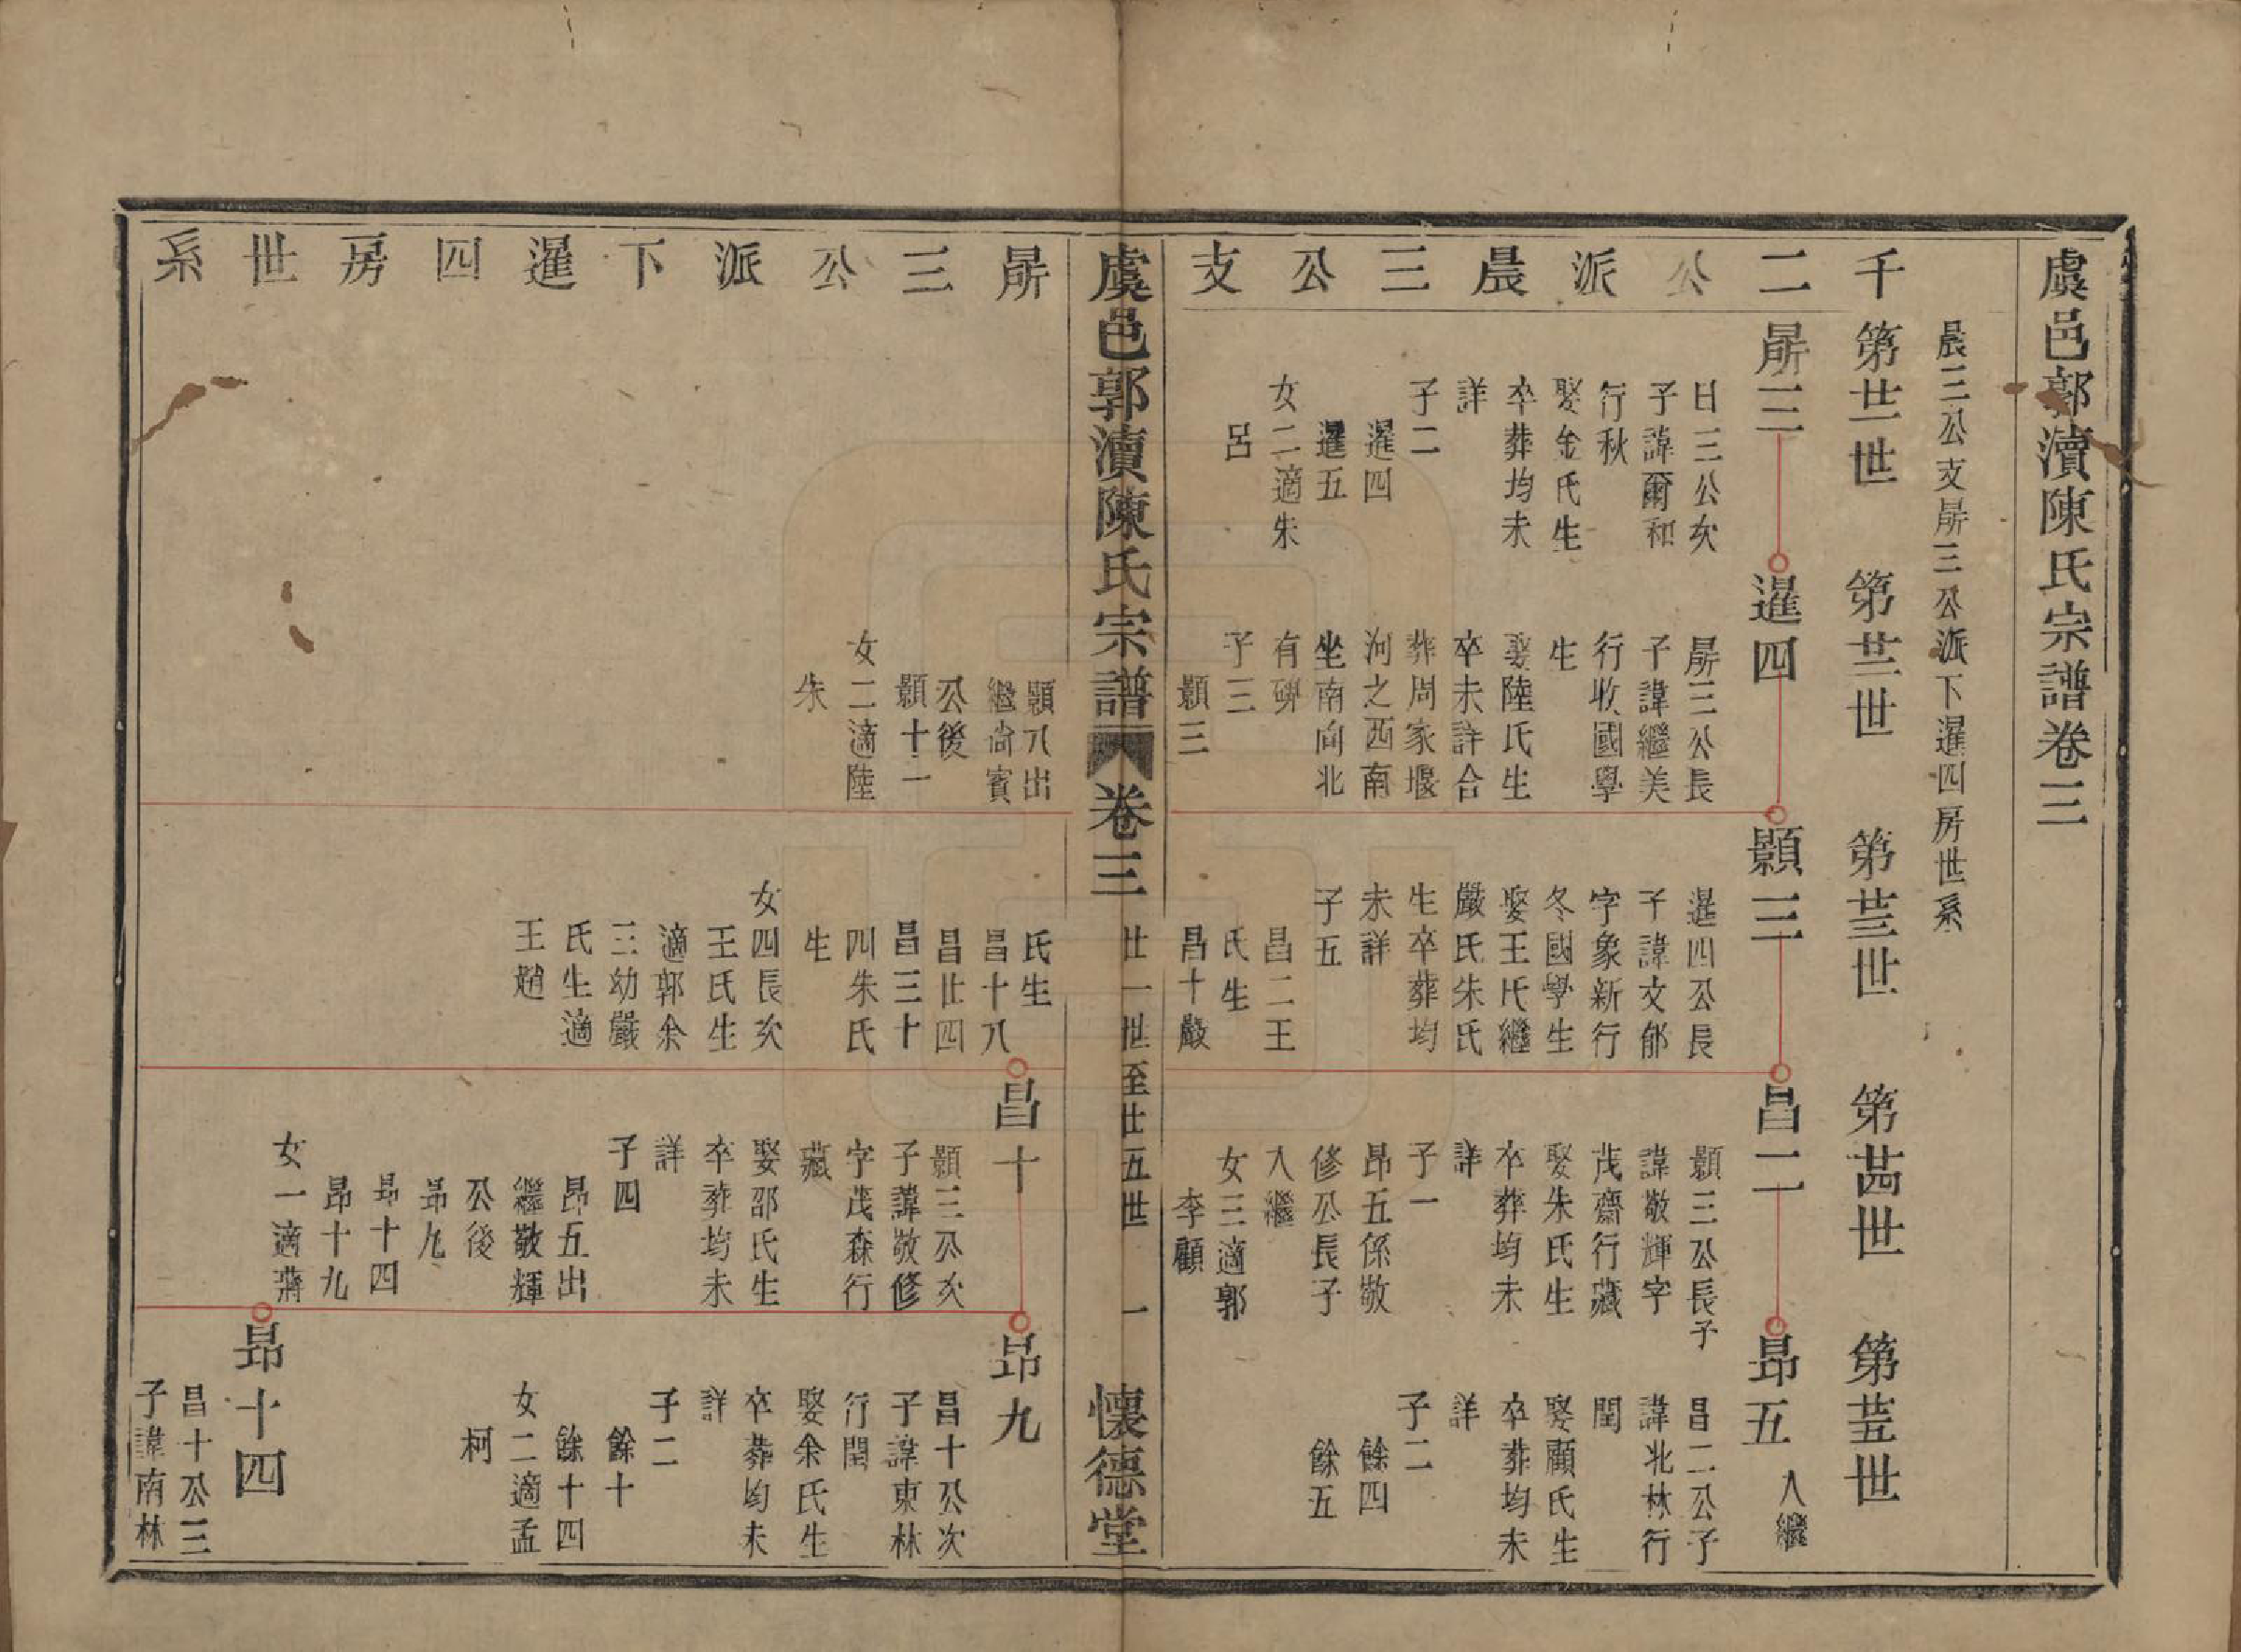 虞邑郭瀆陳氏宗譜卷三
晨三公支昴三公派下暹四房世系
千二公派晨三公支
第廿一世
第廿二世
第廿三世
第廿四世
第廿五世
三
日三公次
子諱爾和
行秋
娶金氏生
卒葬均未
詳
子二
暹四
暹五
女二適朱
呂
暹四
三公長
子諱繼美
行收國學
生
娶陸氏生
卒未詳合
葬周家堰
河之西南
坐南向北
有碑
子三
顥三
顥三
暹四公長
子諱文郁
字象新行
冬國學生
娶王氏繼
嚴氏朱氏
生卒葬均
未詳
子五
昌二王
氏生
昌十嚴
昌二
顥三公長子
諱敬輝字
茂齋行藏
娶朱氏生
卒葬均未
詳
子一
昂五係敬
修公長子
入繼
女三適郭
李顧
昂五 入繼
昌二公子
諱北林行
閏
娶顧氏生
卒葬均未
詳
子二
餘四
餘五
虞邑郭瀆陳氏宗譜 卷三 廿一世至廿五世 一 懷德堂
三公派下暹四房世系
顥八出
繼尚賓
公後
顥十一
女二適陸
朱
氏生
昌十八
昌廿四
昌三十
四朱氏
生
女四長次
王氏生
適郭余
三幼嚴
氏生適
王趙
昌十
顥三公次
子諱敬修
字茂森行
藏
娶邵氏生
卒葬均未
詳
子四
昂五出
繼敬輝
公後
昂九
昂十四
昂十九
女一適蔣
昂九
昌十公次
子諱東林
行閏
娶余氏生
卒葬均未
詳
子二
餘十
餘十四
女二適孟
柯
昂十四
昌十公三
子諱南林